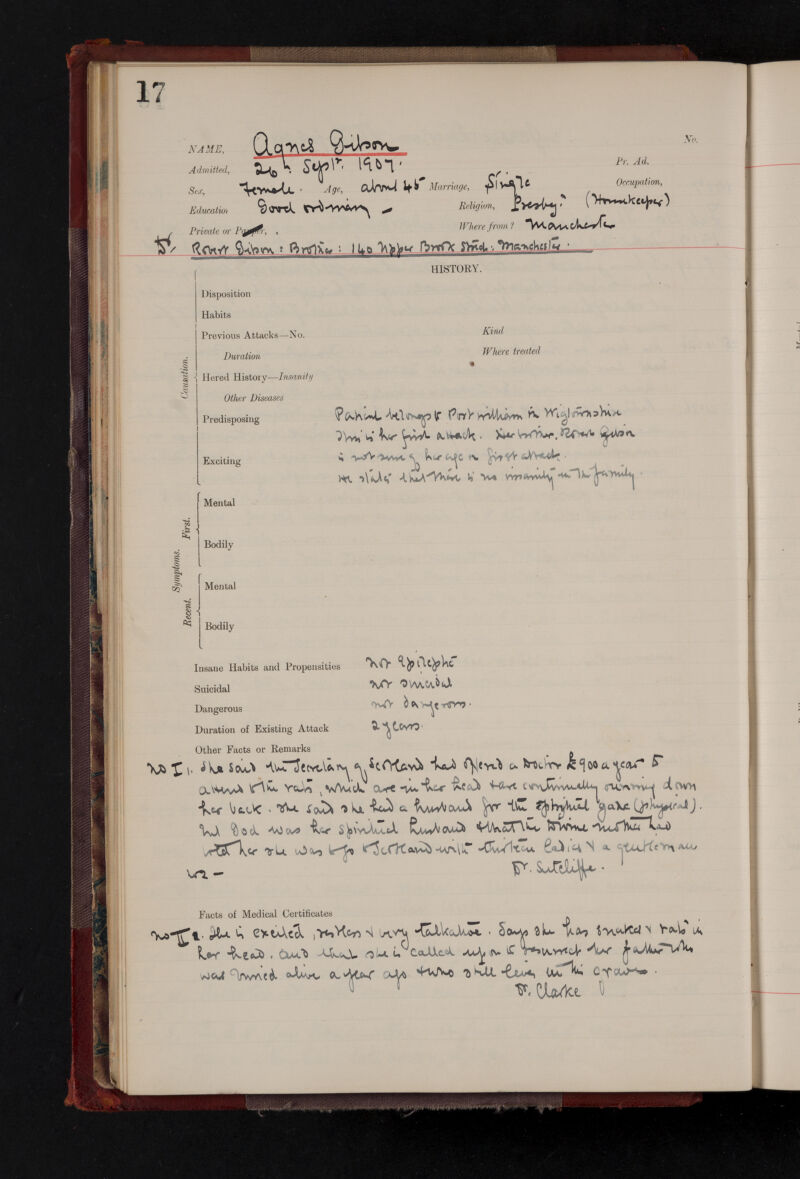 17
No.
NAME, Agnes Gibson
Admitted, 26th. Sept. 1907. Pr. Ad.
Sex, Female. Age, about 45 Marriage, Single Occupation,
Education Good ordinary Religion, Presby: (Housekeeper)
Private or Pauper, Where from? Manchester
Robert Gibson: Brother: 140 Upper Brook Street: Manchester.
HISTORY.
Disposition
Habits
Previous Attacks—No. Kind
Duration Where treated
Causation.
Hered History—Insanity
Other Diseases
Predisposing Patient belongs to Port william in Wigtownshire
This is her first attack. Her brother, Robert Gibson
Exciting is not sure of her age on first attack.
He states that there is no insanity in the family.
Symptoms.
First.
Mental
Bodily
Recent.
Mental
Bodily
Insane Habits and Propensities not Epileptic
Suicidal not suicidal
Dangerous not dangerous.
Duration of Existing Attack 2 years.
Other Facts or Remarks
No I 1. She said the Secretary of Scotland had offered a Doctor £900 a year to
attend to the rats, which are in her head & are continually running down
her back. She said she had a husband for the (physical).
but God was her spiritual husband & that the Divine mother had
told her she was to go to Scotland with thirteen ladies & a gentleman
Dr. Sutcliffe.
Facts of Medical Certificates
No II She is excited, restless & very talkative. Says she has snakes & rats in
her head. and that she is called upon to resurrect her father who
was buried alive a year ago & who still lives in his grave.
Dr. Clarke